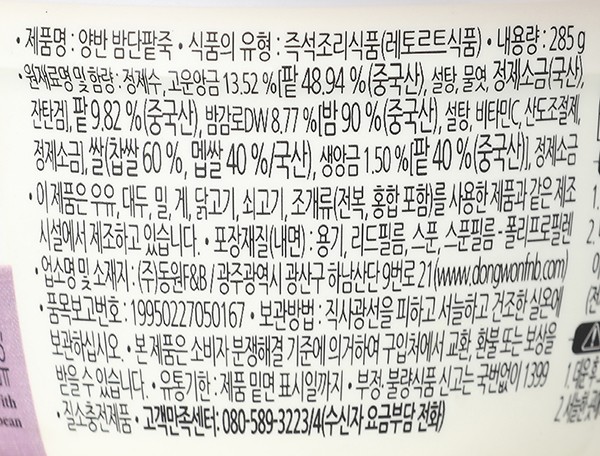 • 제품명 : 양반 밤단팥죽 • 식품의 유형 : 즉석조리식품(레토르트식품) • 내용량 : 285 g
• 원재료명 및 함량 : 정제수, 고운앙금 13.52 %[팥 48.94 %(중국산), 설탕, 물엿, 정제소금(국산),
잔탄검], 팥 9.82 %(중국산), 밤감로DW 8.77 %[밤 90 %(중국산), 설탕, 비타민C, 산도조절제,
정제소금], 쌀(찹쌀 60 %, 멥쌀 40 %/국산), 생앙금 1.50 %[팥 40 %(중국산)], 정제소금
• 이 제품은 우유, 대두, 밀, 게, 닭고기, 쇠고기, 조개류(전복, 홍합 포함)를 사용한 제품과 같은 제조
시설에서 제조하고 있습니다. • 포장재질(내면) : 용기, 리드필름, 스푼, 스푼필름 - 폴리프로필렌
• 업소명 및 소재지 : (주)동원F&B / 광주광역시 광산구 하남산단 9번로 21(www.dongwonfnb.com)
• 품목보고번호 : 19950227050167 • 보관방법 : 직사광선을 피하고 서늘하고 건조한 실온에
보관하십시오. • 본 제품은 소비자 분쟁해결 기준에 의거하여 구입처에서 교환, 환불 또는 보상을
받을 수 있습니다. • 유통기한 : 제품 밑면 표시일까지 • 부정·불량식품 신고는 국번없이 1399
• 질소충전제품 • 고객만족센터 : 080-589-3223/4(수신자 요금부담 전화)
ith
ean
1.
2.